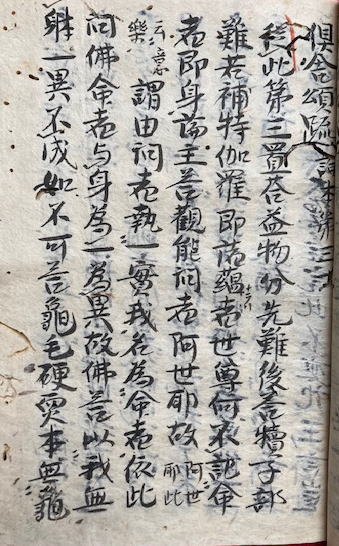 俱舍頌疏
從此第三置答益物分先難後答犢子部
難若補特伽羅即諸蘊者世尊何不記命
者即身論主答觀能問者阿世耶故 阿世耶此
云意樂 謂由問者執一實我名為命者依此
問佛命者与身為一為異故佛答以我無
一異不成如不可答龜毛硬耎本無龜